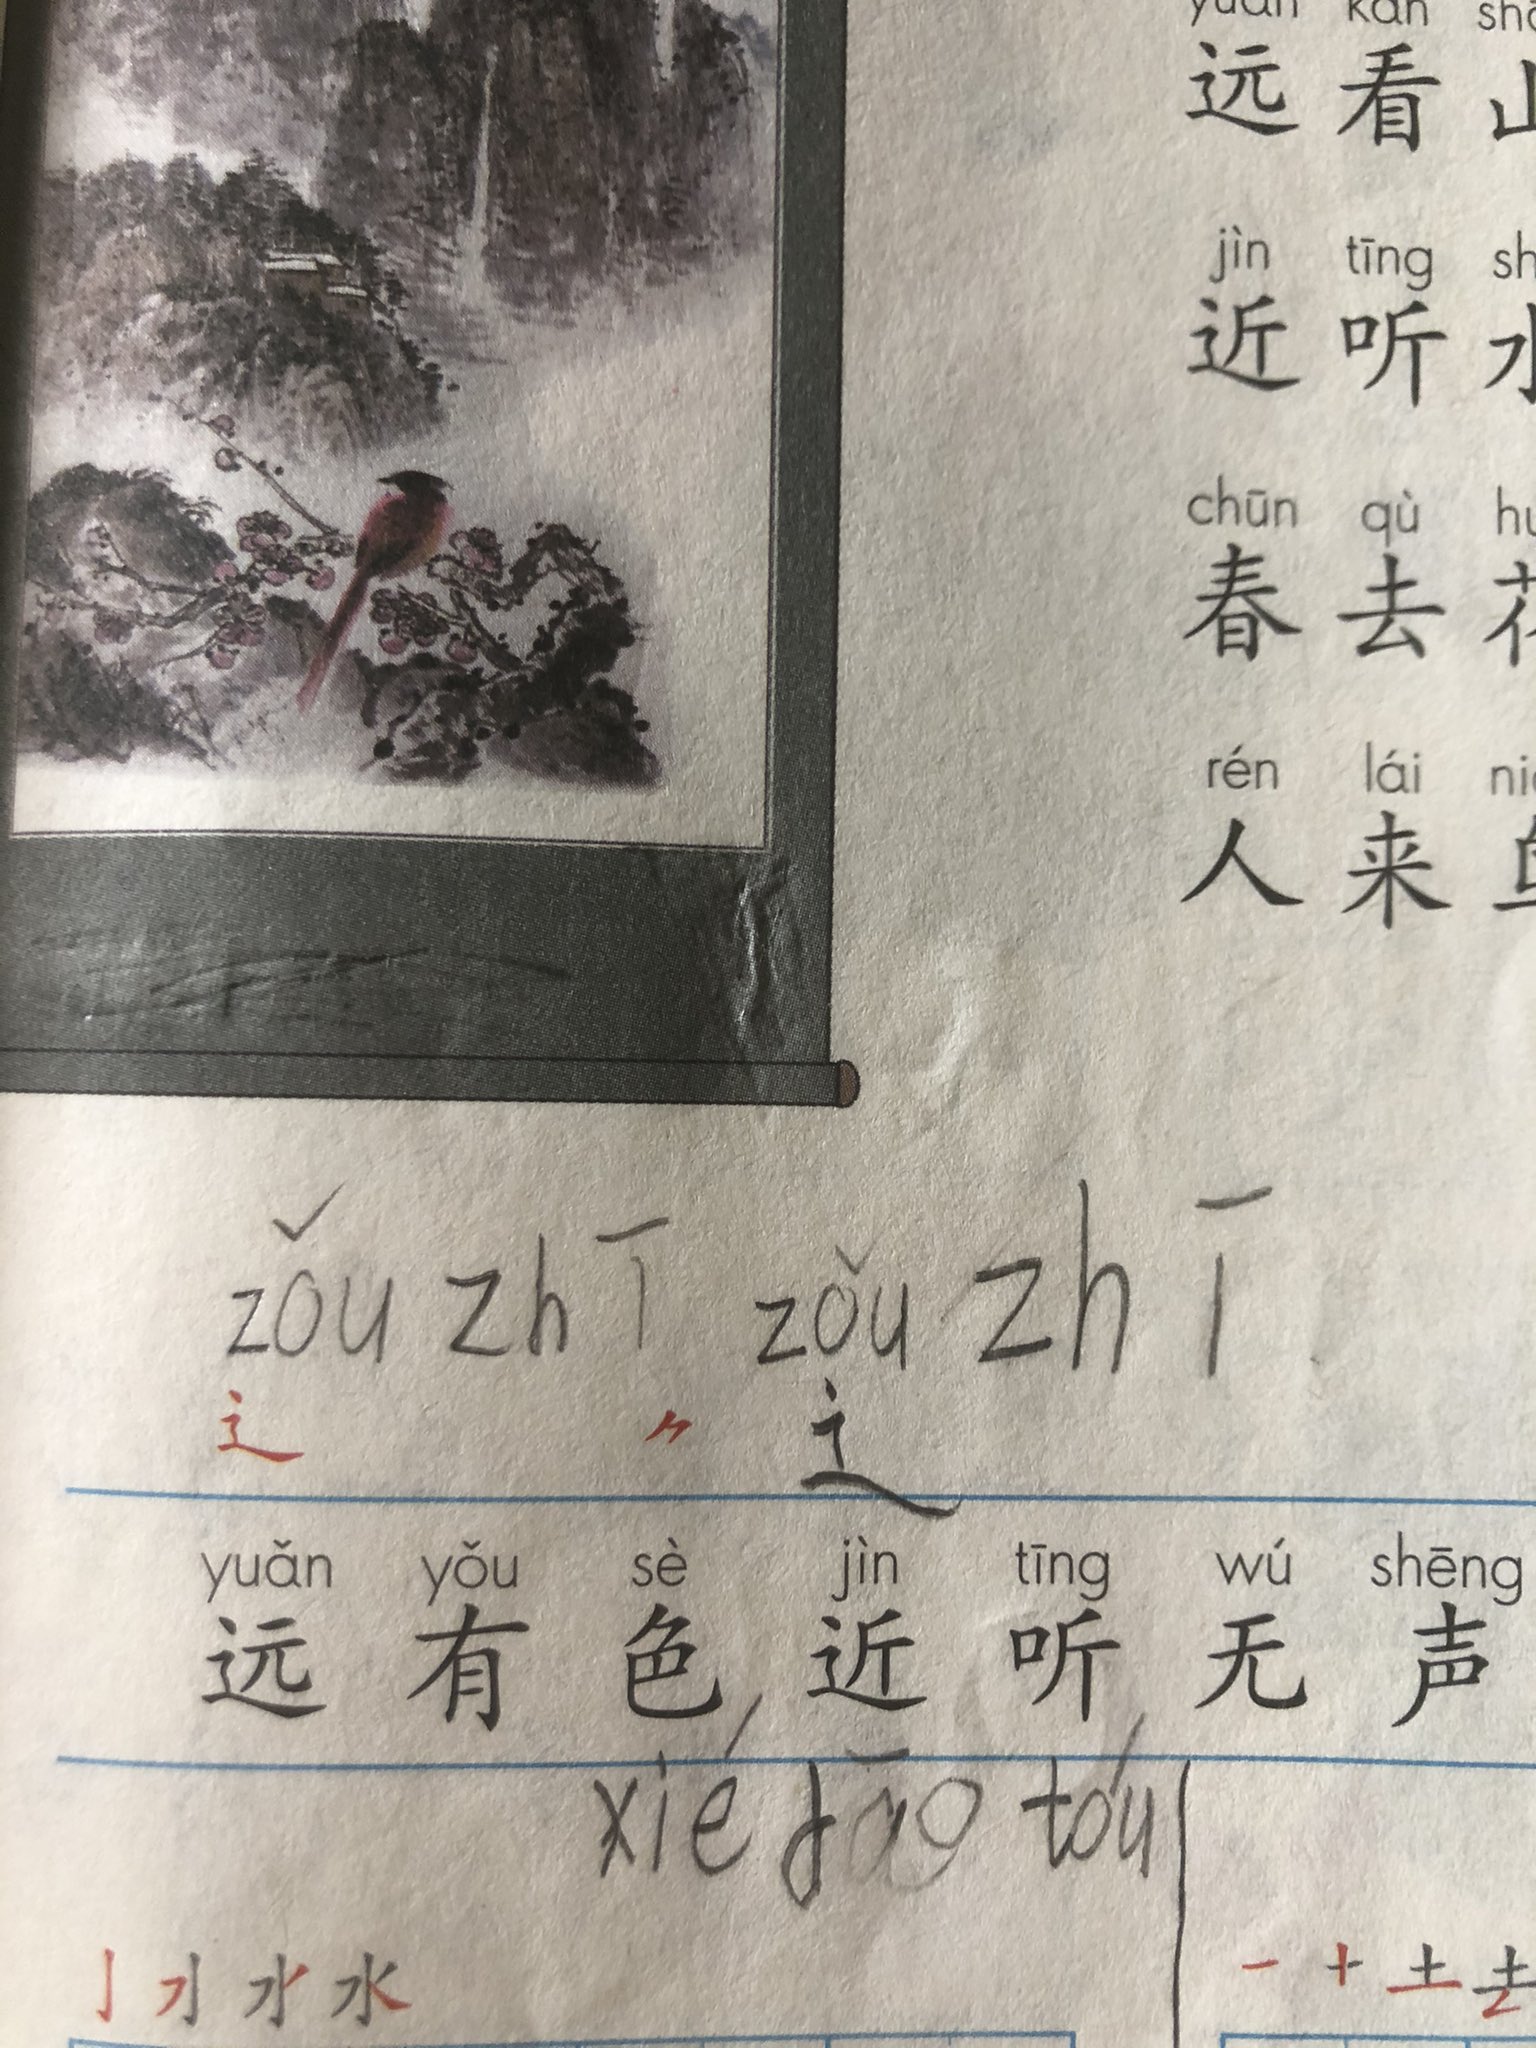 yuǎn kàn
远 看 山
jìn tīng
近 听 水
chūn qù
春 去 花
rén lái
人 来 鸟
zǒu zhī zǒu zhī
辶 辶
yuǎn yǒu sè jìn tīng wú shēng
远 有 色 近 听 无 声
xié dāo tóu
丨 水 一 十 土 去